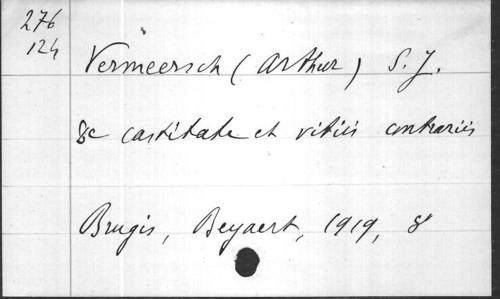 276
124
Vermeersch (Arthur) S. J.
De castitate et vitiis contrariis
Brugis, Beyaert, 1919, 8